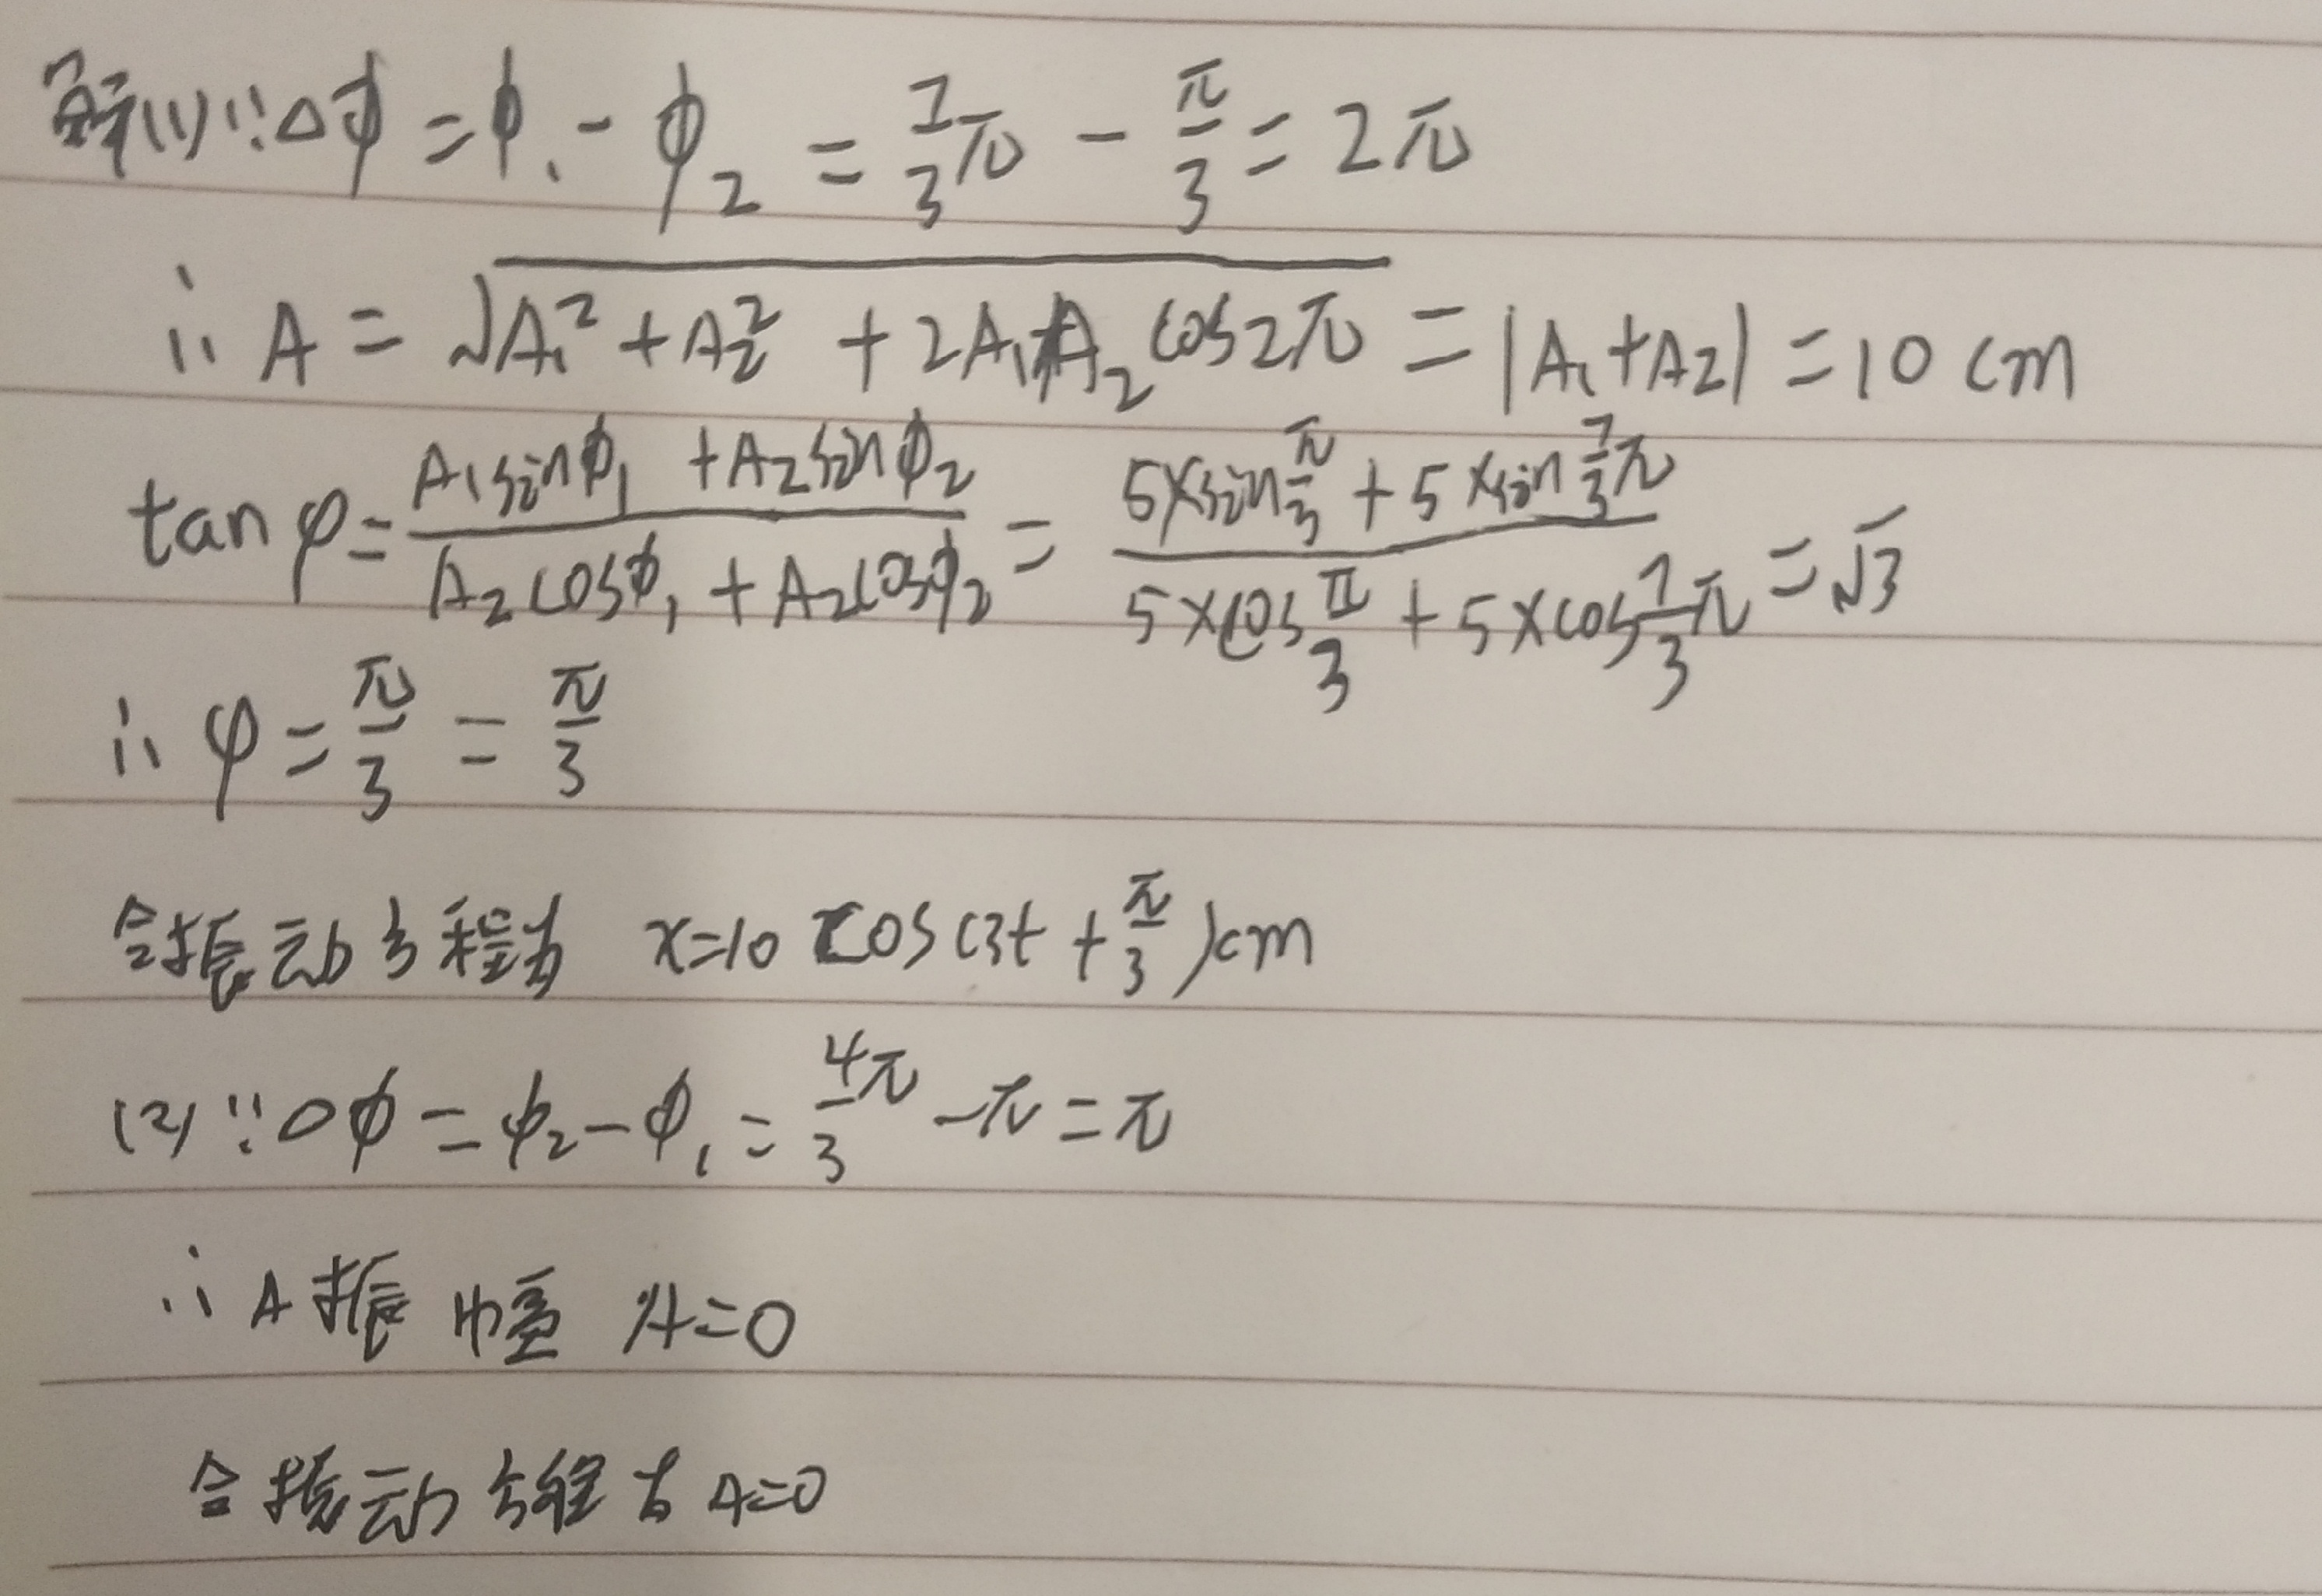 解(1)∵Δφ=φ₁-φ₂=7/3π-π/3=2π
∴A=√(A₁²+A₂²+2A₁A₂cos2π)=|A₁+A₂|=10cm
tanφ=(A₁sinφ₁+A₂sinφ₂)/(A₂cosφ₁+A₂cosφ₂)=(5×sinπ/3+5×sin7/3π)/(5×cosπ/3+5×cos7/3π)=√3
∴φ=π/3=π/3
合振动方程为 x=10cos(3t+π/3)cm
(2)∵Δφ=φ₂-φ₁=4π/3-π=π
∴A振幅 A=0
合振动方程为A=0